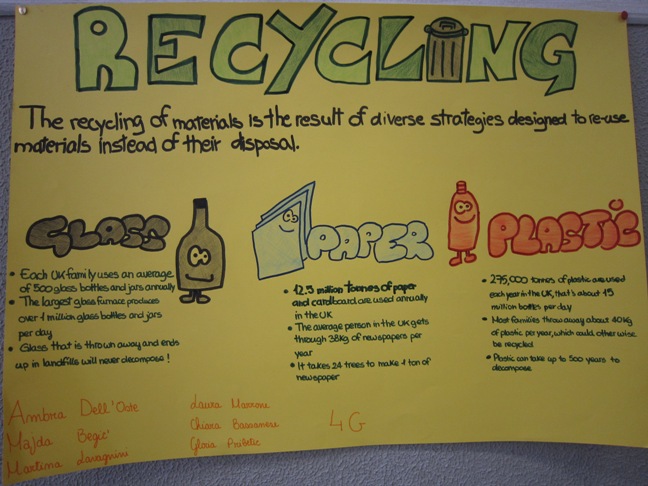 RECYCLING
The recycling of materials is the result of diverse strategies designed to re-use
materials instead of their disposal.
GLASS
• Each UK family uses an average
of 500 glass bottles and jars annually
• The largest glass furnace produces
over 1 million glass bottles and jars
per day
• Glass that is thrown away and ends
up in landfills will never decompose!
PAPER
• 12.5 million tonnes of paper
and cardboard are used annually
in the UK
• The average person in the UK gets
through 38kg of newspapers per
year
• It takes 24 trees to make 1 ton of
newspaper
PLASTIC
• 275,000 tonnes of plastic are used
each year in the UK, that's about 15
million bottles per day
• Most families throw away about 40kg
of plastic per year, which could otherwise
be recycled
• Plastic can take up to 500 years to
decompose
Ambra Dell'Oste
Majda Begić
Martina Lavagnini
Laura Marrone
Chiara Bassanese
Gloria Pribetic
4G